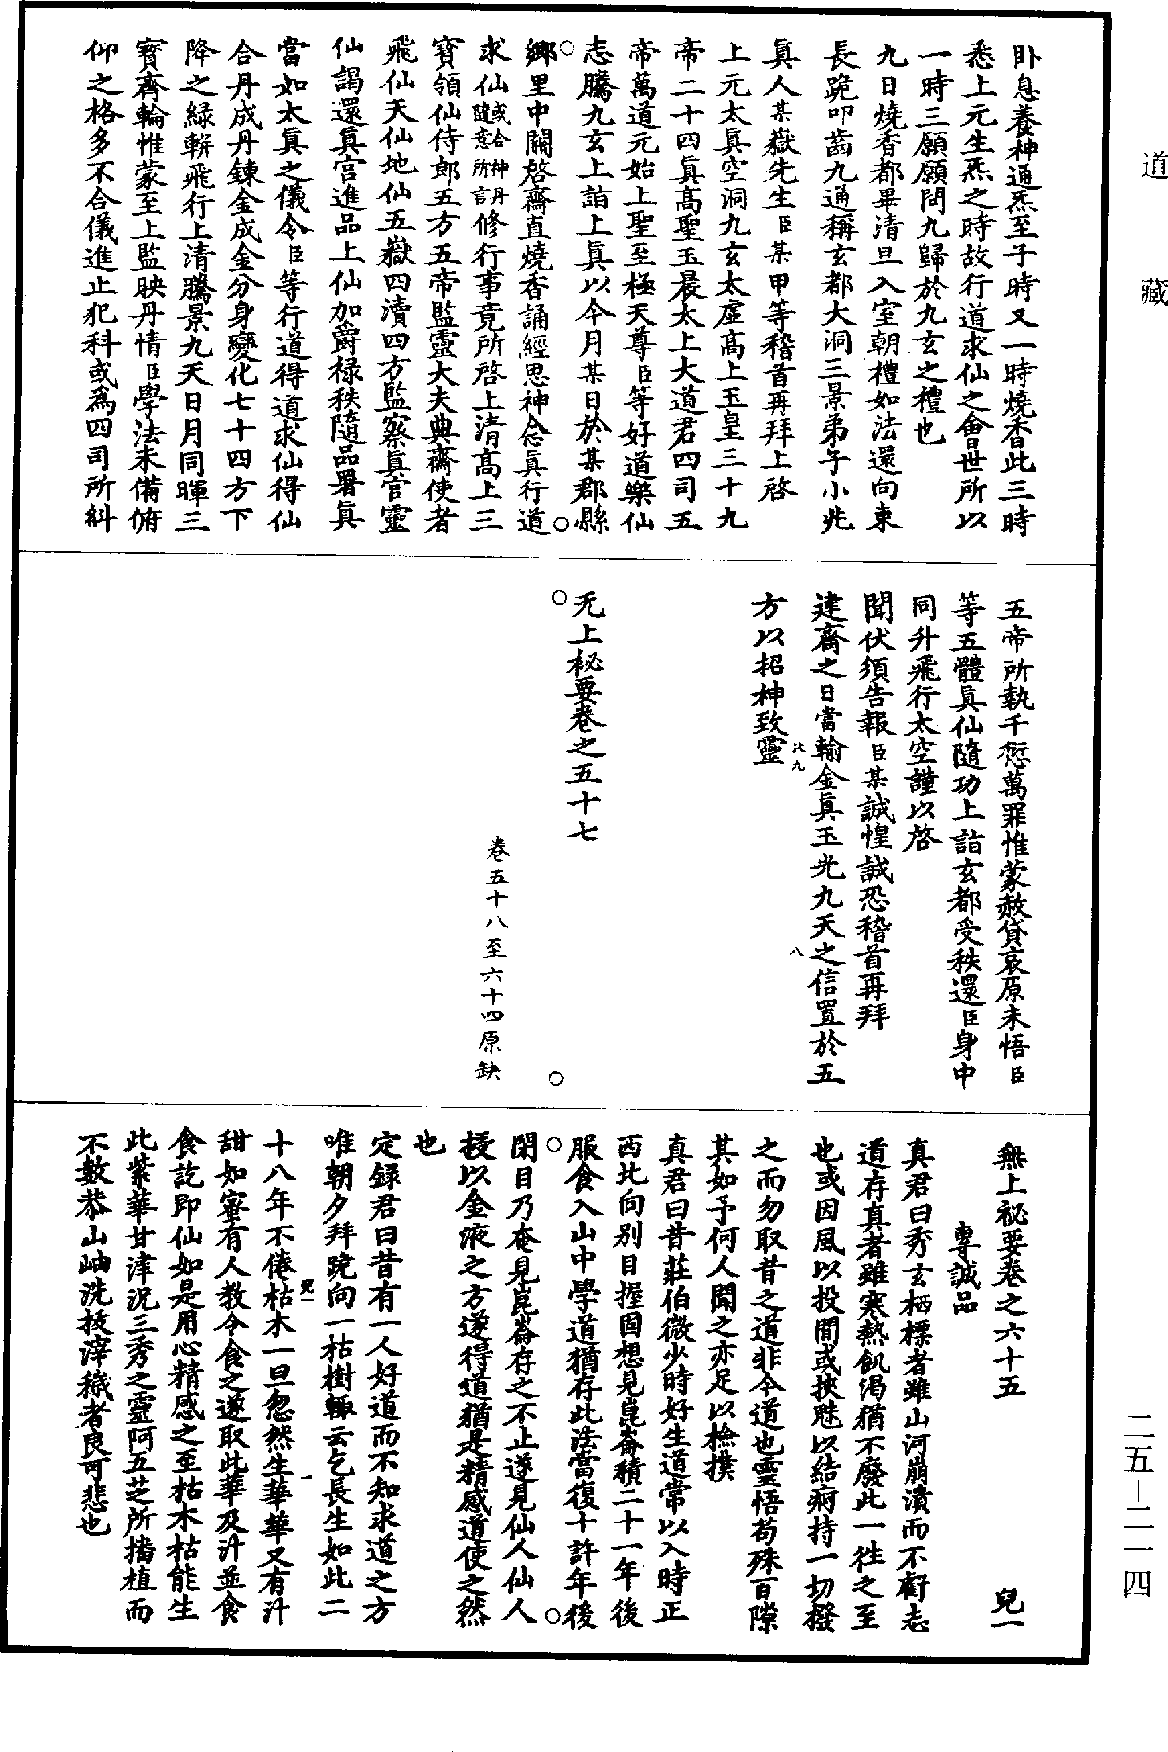 道藏
臥息養神通炁至子時又一時燒香此三時
悉上元生炁之時故行道求仙之會世所以
一時三願願問九歸於九玄之禮也
九日燒香都畢清旦入室朝禮如法還向東
長跪叩齒九通稱玄都大洞三景弟子小兆
真人某嶽先生臣某甲等稽首再拜上啓
上元太真空洞九玄太虛高上玉皇三十九
帝二十四真高聖玉晨太上大道君四司五
帝萬道元始上聖至極天尊臣等好道樂仙
志騰九玄上詣上真以今月某日於某郡縣
鄉里中關啓齋直燒香誦經思神念真行道
求仙或合神丹隨意所言修行事竟所啓上清高上三
寶領仙侍郎五方五帝監靈大夫典齋使者
飛仙天仙地仙五嶽四瀆四方監察真官靈
仙謁還真宫進品上仙加爵祿秩隨品署真
當如太真之儀令臣等行道得道求仙得仙
合丹成丹鍊金成金分身變化七十四方下
降之綠軿飛行上清騰景九天日月同暉三
寶齊輪惟蒙至上監映丹情臣學法未備俯
仰之格多不合儀進止犯科或爲四司所糾
五帝所執千愆萬罪惟蒙赦貸哀原未悟臣
等五體真仙隨功上詣玄都受秩還臣身中
同升飛行太空謹以啓
聞伏須告報臣某誠惶誠恐稽首再拜
建齋之日當輸金真玉光九天之信置於五
方以招神致靈
无上秘要卷之五十七
卷五十八至六十四原缺
無上祕要卷之六十五 兒一
專誠品
真君曰秀玄栖標者雖山河崩潰而不𥨊志
道存真者雖寒熱飢渴猶不廢此一往之至
也或因風以投間或挾魅以結痾持一切撥
之而勿取昔之道非今道也靈悟苟殊百隙
其如予何人聞之亦足以檢撲
真君曰昔莊伯微少時好生道常以入時正
西北向別目握固想見崑崙積二十一年後
服食入山中學道猶存此法當復十許年後
閉目乃奄見崑崙存之不止遂見仙人仙人
授以金液之方遂得道猶是精感道使之然
也
定錄君曰昔有一人好道而不知求道之方
唯朝夕拜跪向一枯樹輒云乞長生如此二
十八年不倦枯木一旦忽然生華華又有汁
甜如蜜有人教令食之遂取此華及汁並食
食訖即仙如是用心精感之至枯木枯能生
此紫華甘津況三秀之靈阿五芝所播植而
不數恭山岫洗技滓穢者良可悲也
二五－二一四